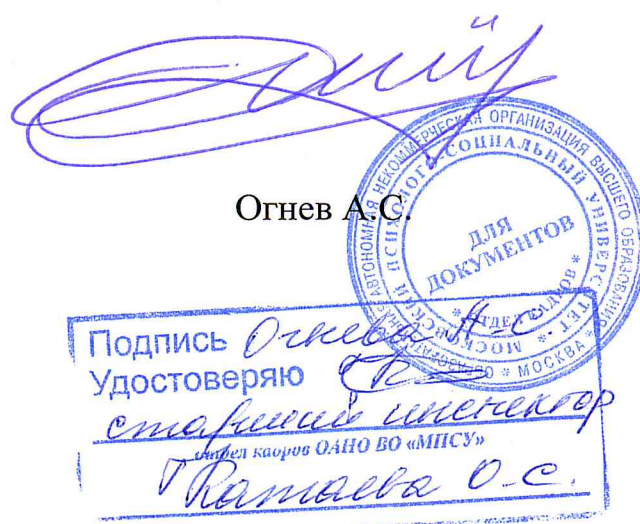 Огнев А.С.
АВТОНОМНАЯ НЕКОММЕРЧЕСКАЯ ОРГАНИЗАЦИЯ ВЫСШЕГО ОБРАЗОВАНИЯ
МОСКОВСКИЙ ПСИХОЛОГО-СОЦИАЛЬНЫЙ УНИВЕРСИТЕТ
* МОСКВА
ДЛЯ
ДОКУМЕНТОВ
* ОТДЕЛ КАДРОВ *
Подпись Огнева А.С.
Удостоверяю
старший инспектор
отдел кадров ОАНО ВО «МПСУ»
О.С.